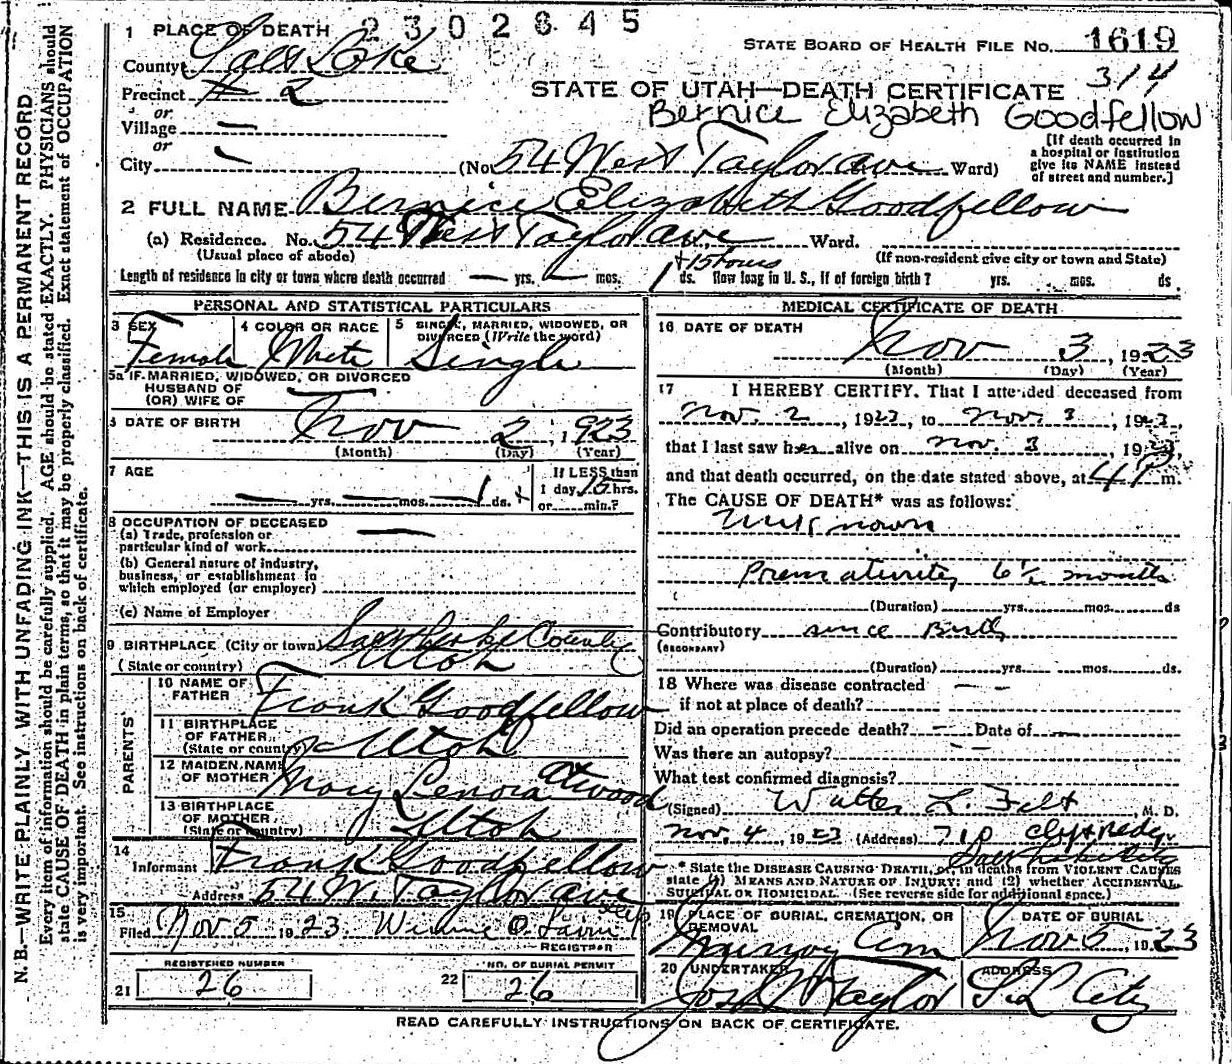 2302645
1 PLACE OF DEATH
STATE BOARD OF HEALTH FILE NO. 1619
County Salt Lake
314
Precinct # 2
STATE OF UTAH—DEATH CERTIFICATE
or
Village —
Bernice Elizabeth Goodfellow
or
City —
(No. 54 West Taylor ave Ward)
[If death occurred in
a hospital or institution
give its NAME instead
of street and number.]
2 FULL NAME Bernice Elizabeth Goodfellow
(a) Residence. No. 54 West Taylor ave, Ward.
(Usual place of abode)
(If non-resident give city or town and State)
Length of residence in city or town where death occurred — yrs. — mos. 1 ds. + 15 hours How long in U. S., if of foreign birth? yrs. mos. ds.
PERSONAL AND STATISTICAL PARTICULARS
3 SEX
Female
4 COLOR OR RACE
White
5 SINGLE, MARRIED, WIDOWED, OR
DIVORCED (Write the word)
Single
5a IF MARRIED, WIDOWED, OR DIVORCED
HUSBAND OF
(OR) WIFE OF —
6 DATE OF BIRTH Nov 2, 1923
(Month) (Day) (Year)
7 AGE
— yrs. — mos. 1 ds. +
If LESS than
1 day, 15 hrs.
or min.?
8 OCCUPATION OF DECEASED
(a) Trade, profession or —
particular kind of work
(b) General nature of industry,
business, or establishment in
which employed (or employer)
(c) Name of Employer
9 BIRTHPLACE (City or town) Salt Lake County
(State or country) Utah
PARENTS
10 NAME OF
FATHER Frank Goodfellow
11 BIRTHPLACE
OF FATHER
(State or country) Utah
12 MAIDEN NAME
OF MOTHER Mary Lenora Atwood
13 BIRTHPLACE
OF MOTHER
(State or country) Utah
14
Informant Frank Goodfellow
Address 54 W. Taylor ave
15
Filed Nov 5 1923
REGISTRAR
REGISTERED NUMBER
21 26
NO. OF BURIAL PERMIT
22 26
MEDICAL CERTIFICATE OF DEATH
16 DATE OF DEATH
Nov 3, 1923
(Month) (Day) (Year)
17 I HEREBY CERTIFY, That I attended deceased from
Nov. 2, 1923, to Nov. 3, 1923,
that I last saw her alive on Nov. 3, 1923,
and that death occurred, on the date stated above, at 4 P m.
The CAUSE OF DEATH* was as follows:
Unknown
Prematurity 6½ months
(Duration) yrs. mos. ds
Contributory since Birth
(SECONDARY)
(Duration) yrs. mos. ds.
18 Where was disease contracted — —
if not at place of death?
Did an operation precede death? — Date of —
Was there an autopsy? —
What test confirmed diagnosis?
(Signed) Walter L. Felt M. D.
Nov. 4, 1923 (Address) 710 Clift Bldg.
Salt Lake City
* State the DISEASE CAUSING DEATH, or, in deaths from VIOLENT CAUSES
state (1) MEANS AND NATURE OF INJURY; and (2) whether ACCIDENTAL,
SUICIDAL OR HOMICIDAL. (See reverse side for additional space.)
19 PLACE OF BURIAL, CREMATION, OR
REMOVAL
Murray Cem
DATE OF BURIAL
Nov 5, 1923
20 UNDERTAKER
Jos Wm Taylor
ADDRESS
S. L City
READ CAREFULLY INSTRUCTIONS ON BACK OF CERTIFICATE.
N. B.—WRITE PLAINLY WITH UNFADING INK—THIS IS A PERMANENT RECORD
Every item of information should be carefully supplied. AGE should be stated EXACTLY. PHYSICIANS should
state CAUSE OF DEATH in plain terms, so that it may be properly classified. Exact statement of OCCUPATION
is very important. See instructions on back of certificate.